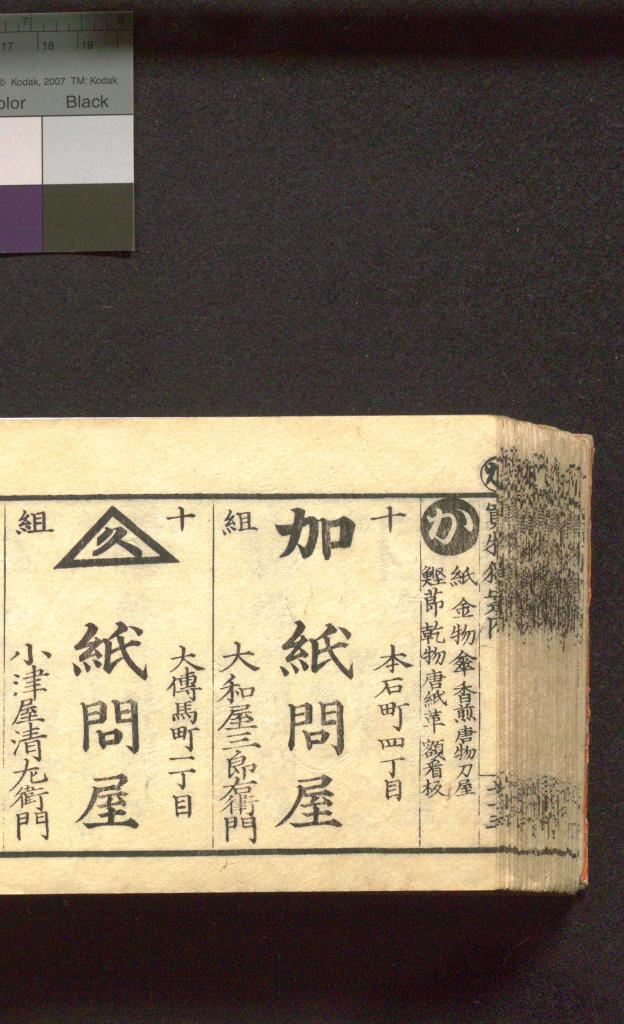 7 8
17 18 19
© Kodak, 2007 TM: Kodak
olor Black
か
紙 金物 傘 香煎 唐物 刀屋
鰹節 乾物 唐紙 革 額看板
十
本石町四丁目
加 紙問屋
組
大和屋三郎右衛門
十
大傳馬町一丁目
久 紙問屋
組
小津屋清左衛門